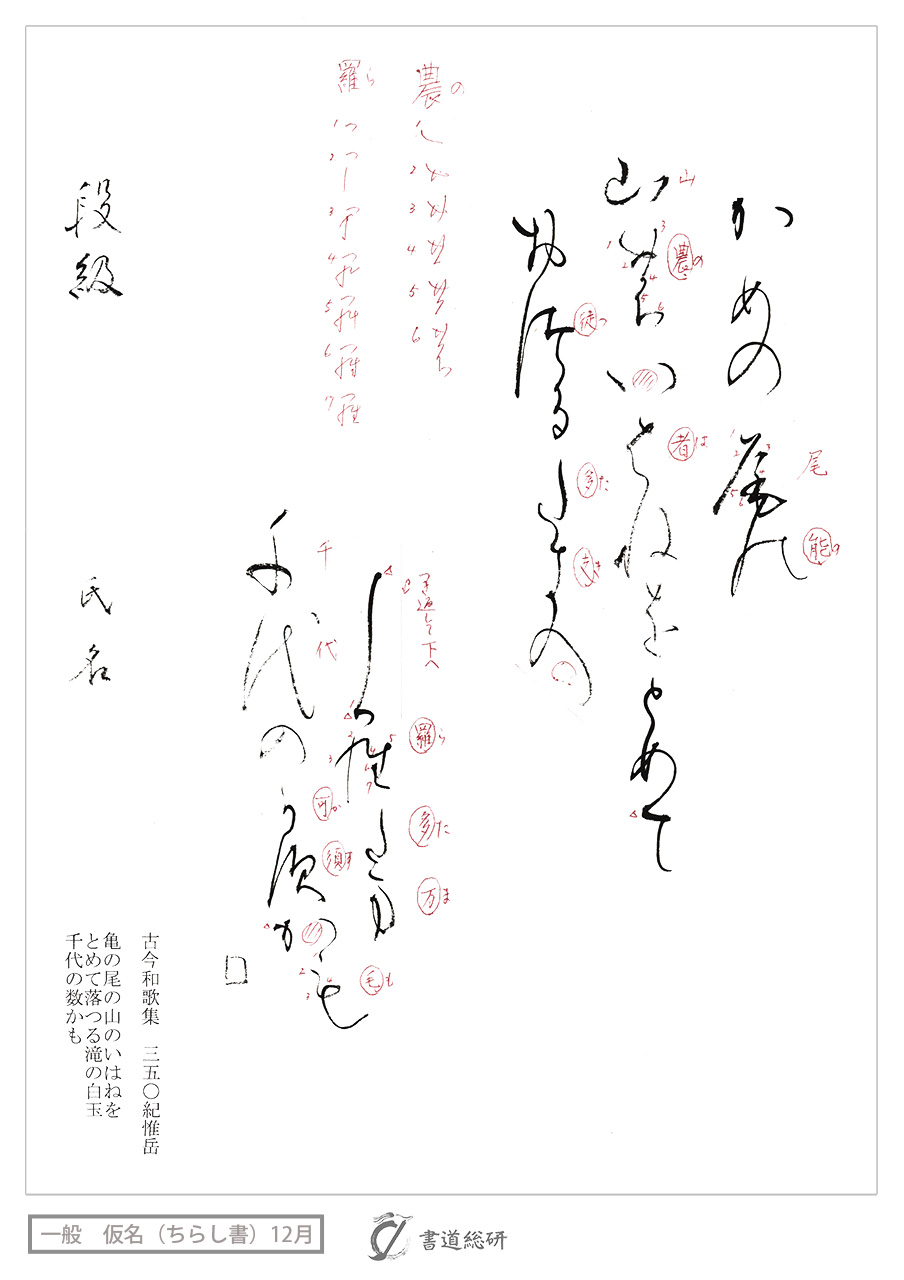 かめの尾能
山農いはねをとめて
於徒る多支の
し羅多万
千代の可須かも
山
尾
農の
能の
徒つ
者は
多た
支き
農の
1
2
3
4
5
6
羅ら
1
2
3
4
5
6
7
千
代
羅ら
多た
万ま
可か
須す
毛も
段級
氏名
古今和歌集 三五〇紀惟岳
亀の尾の山のいはねを
とめて落つる滝の白玉
千代の数かも
一般 仮名(ちらし書)12月
書道総研